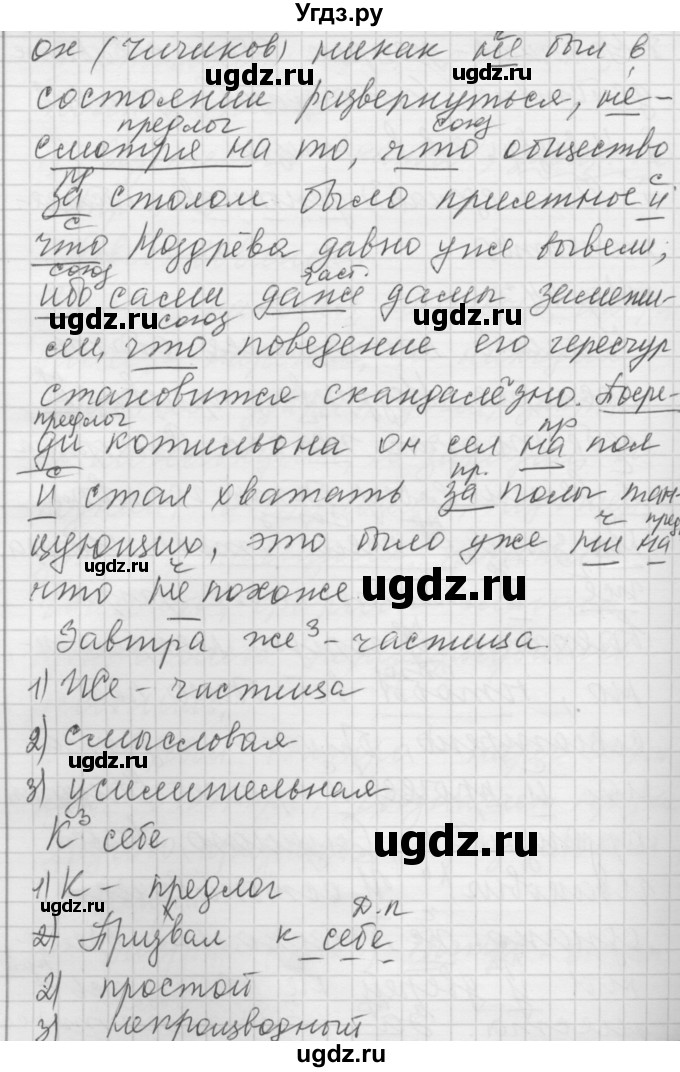 Угдз.ру
он (Чичиков) никак не был в
ugdz.ru
состоянии развернуться, не-
предлог союз
смотря на то, что общество
пр
за столом было приятное и
с с
что Ноздрёва давно уже вывели,
союз част.
ибо сами даже дамы замети-
ugdz.ru союз ugdz.ru
ли, что поведение его чересчур
становится скандалёзно. Посре-
предлог пр
ди котильона он сел на пол
с пр.
и стал хватать за полы тан-
ч пред.
цующих, это было уже ни на
ugdz.ru ч
что не похоже ugdz.ru
Завтра же³ - частица.
1) Же - частица
2) смысловая
ugdz.ru
3) усилительная
К³ себе ugdz.ru
1) К - предлог
ugdz.ru х Д.п
2) Призвал к себе
2) простой
3) непроизводный
ugdz.ru